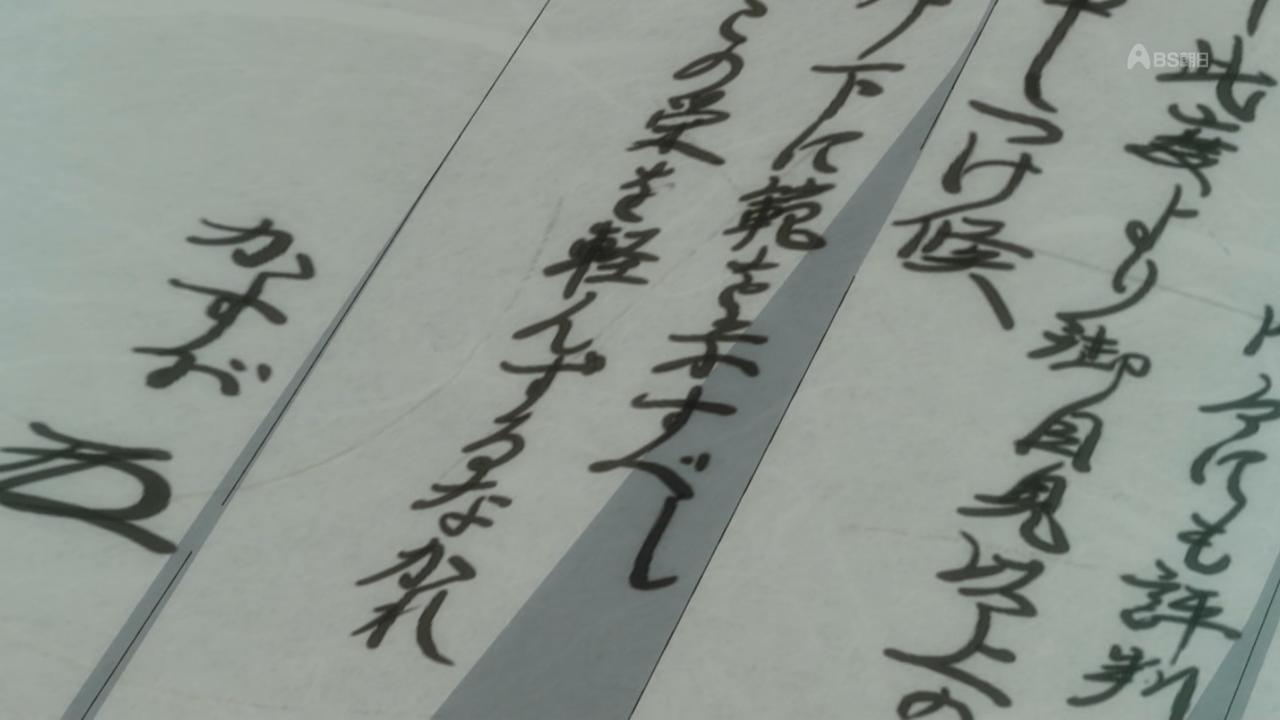 BS朝日
にても評判
此度より御目見以上の
申しつけ候へ
下に範を示すべし
この栄を軽んずるなかれ
かすが